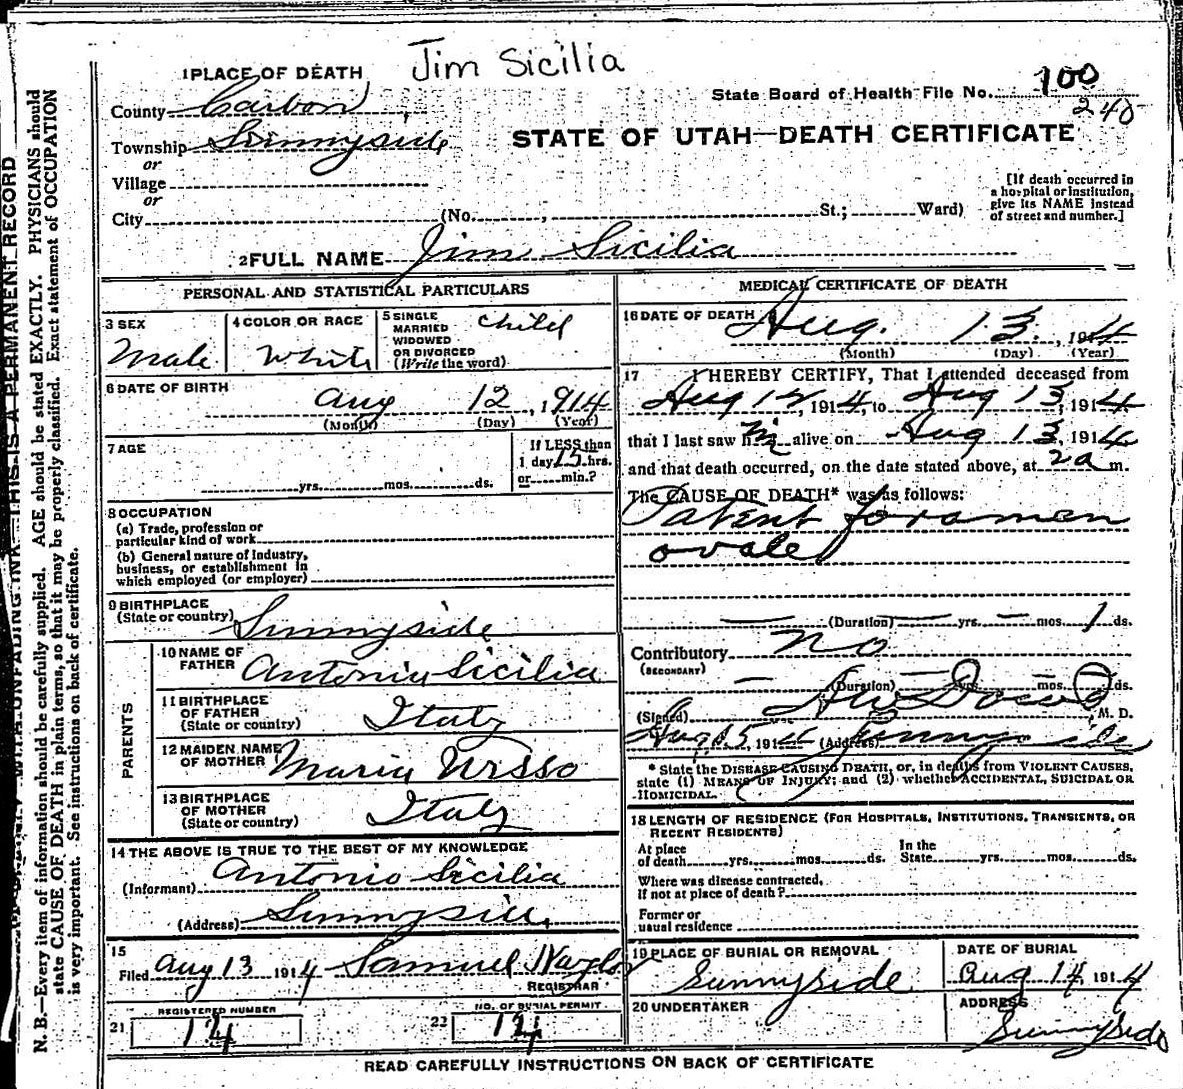 Jim Sicilia
1 PLACE OF DEATH
County Carbon
Township Sunnyside
or
Village
or
City (No. , St.; Ward)
State Board of Health File No. 100
240
STATE OF UTAH—DEATH CERTIFICATE
[If death occurred in
a hospital or institution,
give its NAME instead
of street and number.]
2 FULL NAME Jim Sicilia
PERSONAL AND STATISTICAL PARTICULARS
3 SEX
Male
4 COLOR OR RACE
White
5 SINGLE
MARRIED
WIDOWED
OR DIVORCED
(Write the word)
Child
6 DATE OF BIRTH
Aug 12, 1914
(Month) (Day) (Year)
7 AGE
yrs. mos. ds.
If LESS than
1 day 15 hrs.
or min.?
8 OCCUPATION
(a) Trade, profession or
particular kind of work
(b) General nature of Industry,
business, or establishment in
which employed (or employer)
9 BIRTHPLACE
(State or country)
Sunnyside
PARENTS
10 NAME OF
FATHER
Antonio Sicilia
11 BIRTHPLACE
OF FATHER
(State or country)
Italy
12 MAIDEN NAME
OF MOTHER
Maria Ursso
13 BIRTHPLACE
OF MOTHER
(State or country)
Italy
14 THE ABOVE IS TRUE TO THE BEST OF MY KNOWLEDGE
(Informant) Antonio Sicilia
(Address) Sunnyside
15
Filed Aug 13 1914 Samuel
REGISTRAR
21 REGISTERED NUMBER
124
22 NO. OF BURIAL PERMIT
124
MEDICAL CERTIFICATE OF DEATH
16 DATE OF DEATH
Aug. 13, 1914
(Month) (Day) (Year)
17 I HEREBY CERTIFY, That I attended deceased from
Aug 12, 1914, to Aug 13, 1914
that I last saw him alive on Aug 13, 1914
and that death occurred, on the date stated above, at 2 a m.
The CAUSE OF DEATH* was as follows:
Patent foramen
ovale
(Duration) yrs. mos. 1 ds.
Contributory No
(SECONDARY)
(Duration) yrs. mos. ds.
(Signed) M. D.
Aug 15, 1914 (Address) Sunnyside
* State the DISEASE CAUSING DEATH, or, in deaths from VIOLENT CAUSES,
state (1) MEANS OF INJURY; and (2) whether ACCIDENTAL, SUICIDAL OR
HOMICIDAL.
18 LENGTH OF RESIDENCE (FOR HOSPITALS, INSTITUTIONS, TRANSIENTS, OR
RECENT RESIDENTS)
At place
of death yrs. mos. ds.
In the
State yrs. mos. ds.
Where was disease contracted,
if not at place of death?
Former or
usual residence
19 PLACE OF BURIAL OR REMOVAL
Sunnyside
DATE OF BURIAL
Aug 14, 1914
20 UNDERTAKER
ADDRESS
Sunnyside
READ CAREFULLY INSTRUCTIONS ON BACK OF CERTIFICATE
THIS IS A PERMANENT RECORD
N. B.—Every item of information should be carefully supplied. AGE should be stated EXACTLY. PHYSICIANS should
state CAUSE OF DEATH in plain terms, so that it may be properly classified. Exact statement of OCCUPATION
is very important. See instructions on back of certificate.